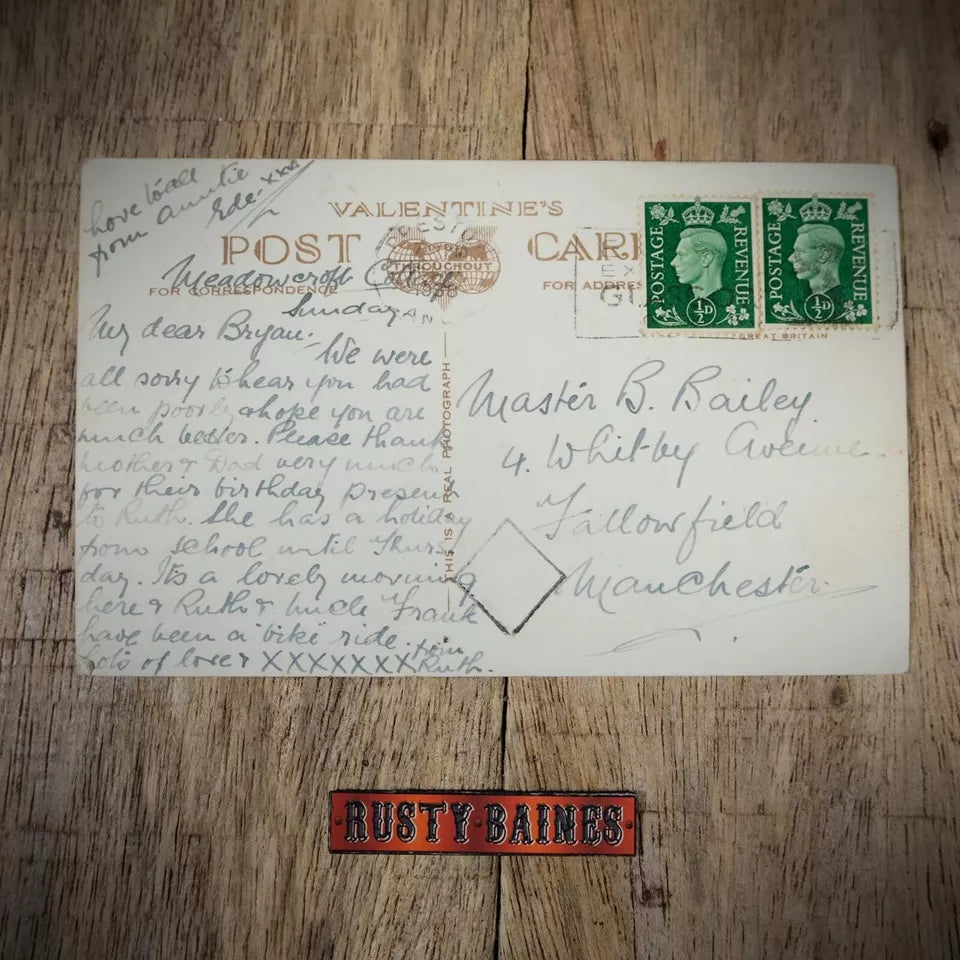 love to all
from auntie
Ede. xxx
VALENTINE'S
POST CARD
THROUGHOUT
Meadowcroft
FOR CORRESPONDENCE
FOR ADDRESS
Sunday
My dear Bryan.
We were
all sorry to hear you had
been poorly & hope you are
much better. Please thank
mother & Dad very much
for their birthday present
to Ruth. She has a holiday
from school until Thurs
day. Its a lovely morning
here & Ruth & Uncle Frank
have been a "bike" ride.
Lots of love & XXXXXXX from
Ruth.
THIS IS A REAL PHOTOGRAPH
POSTAGE REVENUE
½D
POSTAGE REVENUE
½D
GREAT BRITAIN
Master B. Bailey
4. Whitby Avenue
Fallowfield
Manchester.
RUSTY·BAINES